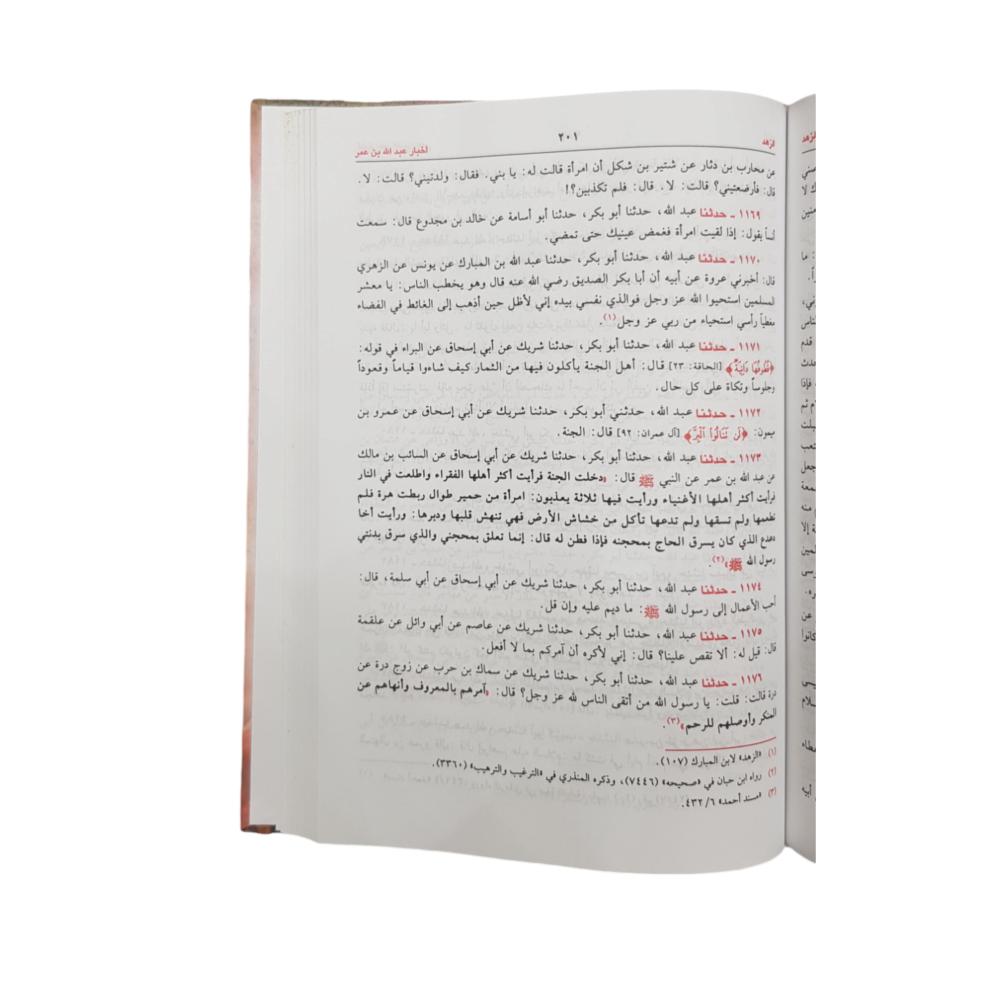 الزهد
٢٠١
أخبار عبد الله بن عمر
عن محارب بن دثار عن شتير بن شكل أن امرأة قالت له: يا بني. فقال: ولدتيني؟ قالت: لا.
قال: فأرضعتيني؟ قالت: لا. قال: فلم تكذبين؟!
١١٦٩ ـ حدثنا عبد الله، حدثنا أبو بكر، حدثنا أبو أسامة عن خالد بن مجدوع قال: سمعت
أنساً يقول: إذا لقيت امرأة فغمض عينيك حتى تمضي.
١١٧٠ ـ حدثنا عبد الله، حدثنا أبو بكر، حدثنا عبد الله بن المبارك عن يونس عن الزهري
قال: أخبرني عروة عن أبيه أن أبا بكر الصديق رضي الله عنه قال وهو يخطب الناس: يا معشر
المسلمين استحيوا الله عز وجل فوالذي نفسي بيده إني لأظل حين أذهب إلى الغائط في الفضاء
مغطياً رأسي استحياء من ربي عز وجل(١).
١١٧١ ـ حدثنا عبد الله، حدثنا أبو بكر، حدثنا شريك عن أبي إسحاق عن البراء في قوله:
﴿قُطُوفُهَا دَانِيَةٌ﴾ [الحاقة: ٢٣] قال: أهل الجنة يأكلون فيها من الثمار كيف شاءوا قياماً وقعوداً
وجلوساً وتكاة على كل حال.
١١٧٢ ـ حدثنا عبد الله، حدثني أبو بكر، حدثنا شريك عن أبي إسحاق عن عمرو بن
ميمون: ﴿لَن تَنَالُوا الْبِرَّ﴾ [آل عمران: ٩٢] قال: الجنة.
١١٧٣ ـ حدثنا عبد الله، حدثنا أبو بكر، حدثنا شريك عن أبي إسحاق عن السائب بن مالك
عن عبد الله بن عمر عن النبي ﷺ قال: «دخلت الجنة فرأيت أكثر أهلها الفقراء واطلعت في النار
فرأيت أكثر أهلها الأغنياء ورأيت فيها ثلاثة يعذبون: امرأة من حمير طوال ربطت هرة فلم
تطعمها ولم تسقها ولم تدعها تأكل من خشاش الأرض فهي تنهش قلبها ودبرها: ورأيت أخا
دعدع الذي كان يسرق الحاج بمحجنه فإذا فطن له قال: إنما تعلق بمحجني والذي سرق بدنتي
رسول الله ﷺ»(٢).
١١٧٤ ـ حدثنا عبد الله، حدثنا أبو بكر، حدثنا شريك عن أبي إسحاق عن أبي سلمة، قال:
أحب الأعمال إلى رسول الله ﷺ: ما ديم عليه وإن قل.
١١٧٥ ـ حدثنا عبد الله، حدثنا أبو بكر، حدثنا شريك عن عاصم عن أبي وائل عن علقمة
قال: قيل له: ألا تقص علينا؟ قال: إني لأكره أن آمركم بما لا أفعل.
١١٧٦ ـ حدثنا عبد الله، حدثنا أبو بكر، حدثنا شريك عن سماك بن حرب عن زوج درة عن
درة قالت: قلت: يا رسول الله من أتقى الناس لله عز وجل؟ قال: «آمرهم بالمعروف وأنهاهم عن
المنكر وأوصلهم للرحم»(٣).
(١) «الزهد» لابن المبارك (١٠٧).
(٢) رواه ابن حبان في «صحيحه» (٧٤٤٦)، وذكره المنذري في «الترغيب والترهيب» (٣٣٦٠).
(٣) «مسند أحمد» ٤٣٢/٦.